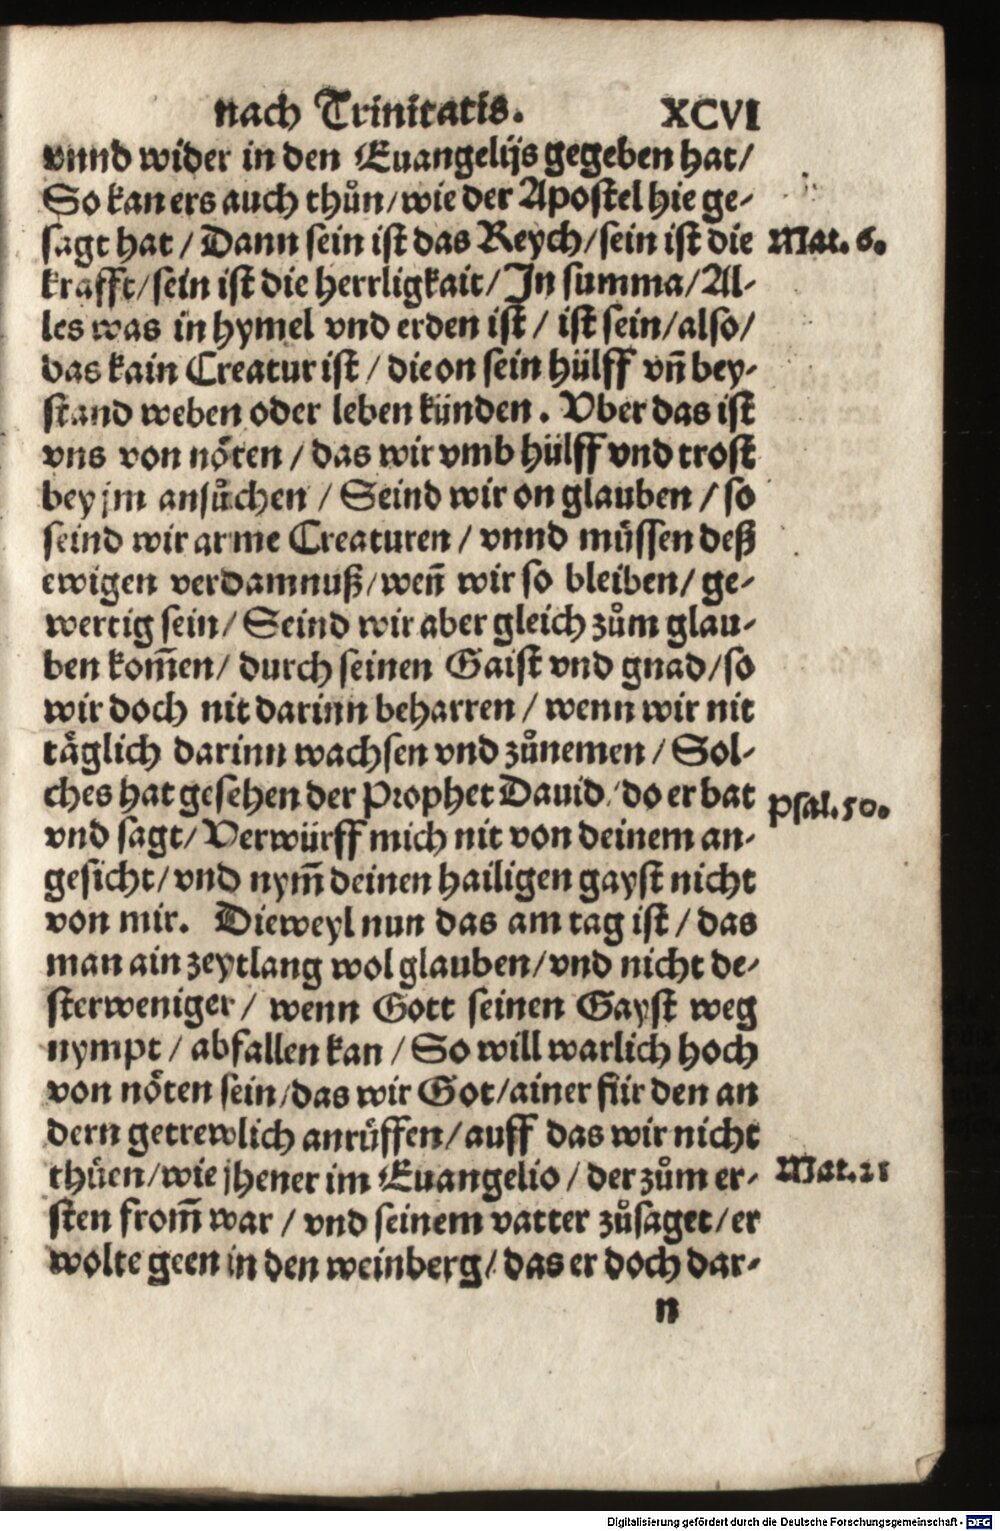 nach Trinitatis. XCVI
vnnd wider in den Euangelijs gegeben hat/
So kan ers auch thůn/wie der Apostel hie ge-
sagt hat / Dann sein ist das Reych/sein ist die Mat. 6.
krafft/sein ist die herrligkait/In summa/Al-
les was in hymel vnd erden ist / ist sein/also/
das kain Creatur ist / die on sein hülff vñ bey-
stand weben oder leben künden. Vber das ist
vns von nöten / das wir vmb hülff vnd trost
bey jm ansůchen / Seind wir on glauben / so
seind wir arme Creaturen / vnnd müssen deß
ewigen verdamnuß/weñ wir so bleiben/ ge-
wertig sein/ Seind wir aber gleich zům glau-
ben kom̃en/ durch seinen Gaist vnd gnad/so
wir doch nit darinn beharren / wenn wir nit
täglich darinn wachsen vnd zůnemen / Sol-
ches hat gesehen der Prophet Dauid/do er bat Psal. 50.
vnd sagt/ Verwürff mich nit von deinem an-
gesicht/vnd nym̃ deinen hailigen gayst nicht
von mir. Dieweyl nun das am tag ist / das
man ain zeytlang wol glauben/vnd nicht de-
sterweniger/ wenn Gott seinen Gayst weg
nympt / abfallen kan / So will warlich hoch
von nöten sein/das wir Got/ainer für den an
dern getrewlich anrüffen/auff das wir nicht
thüen/wie jhener im Euangelio / der zům er- Mat. 21
sten from̃ war / vnd seinem vatter zůsaget/er
wolte geen in den weinberg/ das er doch dar-
n
Digitalisierung gefördert durch die Deutsche Forschungsgemeinschaft - DFG